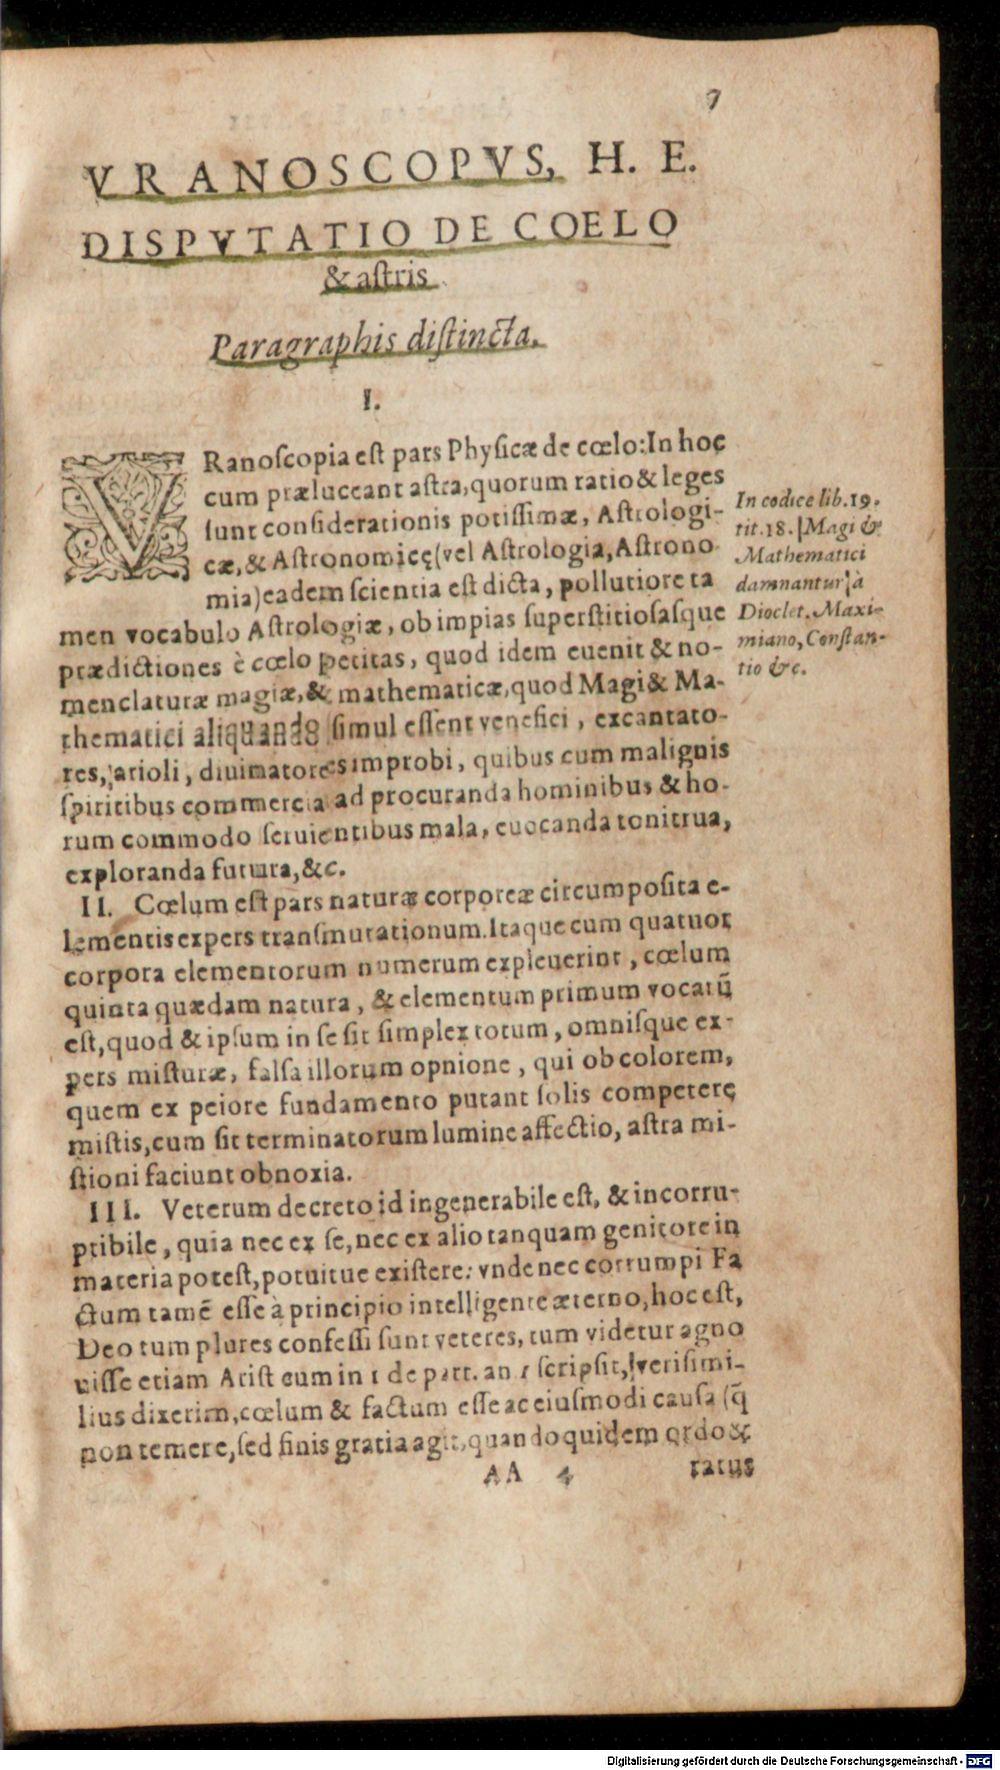 7
VRANOSCOPVS, H. E.
DISPVTATIO DE COELO
& aſtris
Paragraphis diſtincta.
I.
VRanoſcopia eſt pars Phyſicæ de cœlo: In hoc
cum præluceant aſtra, quorum ratio & leges
ſunt conſiderationis potiſſimæ, Aſtrologi-
cæ, & Aſtronomicę (vel Aſtrologia, Aſtrono
mia) eadem ſcientia eſt dicta, pollutiore ta
men vocabulo Aſtrologiæ, ob impias ſuperſtitioſaſque
prædictiones è cœlo petitas, quod idem euenit & no-
menclaturæ magiæ, & mathematicæ, quod Magi & Ma-
thematici aliquando ſimul eſſent venefici, excantato-
res, arioli, diuinatores improbi, quibus cum malignis
ſpiritibus commercia ad procuranda hominibus & ho-
rum commodo ſeruientibus mala, euocanda tonitrua,
exploranda futura, &c.
In codice lib. 19.
tit. 18. [Magi &
Mathematici
damnantur] a
Dioclet. Maxi-
miano, Conſtan-
tio &c.
II. Cœlum eſt pars naturæ corporeæ circumpoſita e-
lementis expers tranſmutationum. Itaque cum quatuor
corpora elementorum numerum expleuerint, cœlum
quinta quædam natura, & elementum primum vocatū
eſt, quod & ipſum in ſe ſit ſimplex totum, omniſque ex-
pers miſturæ, falſa illorum opnione, qui ob colorem,
quem ex peiore fundamento putant ſolis competere
miſtis, cum ſit terminatorum lumine affectio, aſtra mi-
ſtioni faciunt obnoxia.
III. Veterum decreto id ingenerabile eſt, & incorru-
ptibile, quia nec ex ſe, nec ex alio tanquam genitore in
materia poteſt, potuitue exiſtere: vnde nec corrumpi Fa
ctum tamē eſſe à principio intelligente æterno, hoc eſt,
Deo tum plures confeſſi ſunt veteres, tum videtur agno
uiſſe etiam Ariſt cum in 1 de part. an 1 ſcripſit, [veriſimi-
lius dixerim, cœlum & factum eſſe ac eiuſmodi cauſa (q̃
non temere, ſed finis gratia agit, quandoquidem ordo &
AA 4 ratus
Digitalisierung gefördert durch die Deutsche Forschungsgemeinschaft - DFG